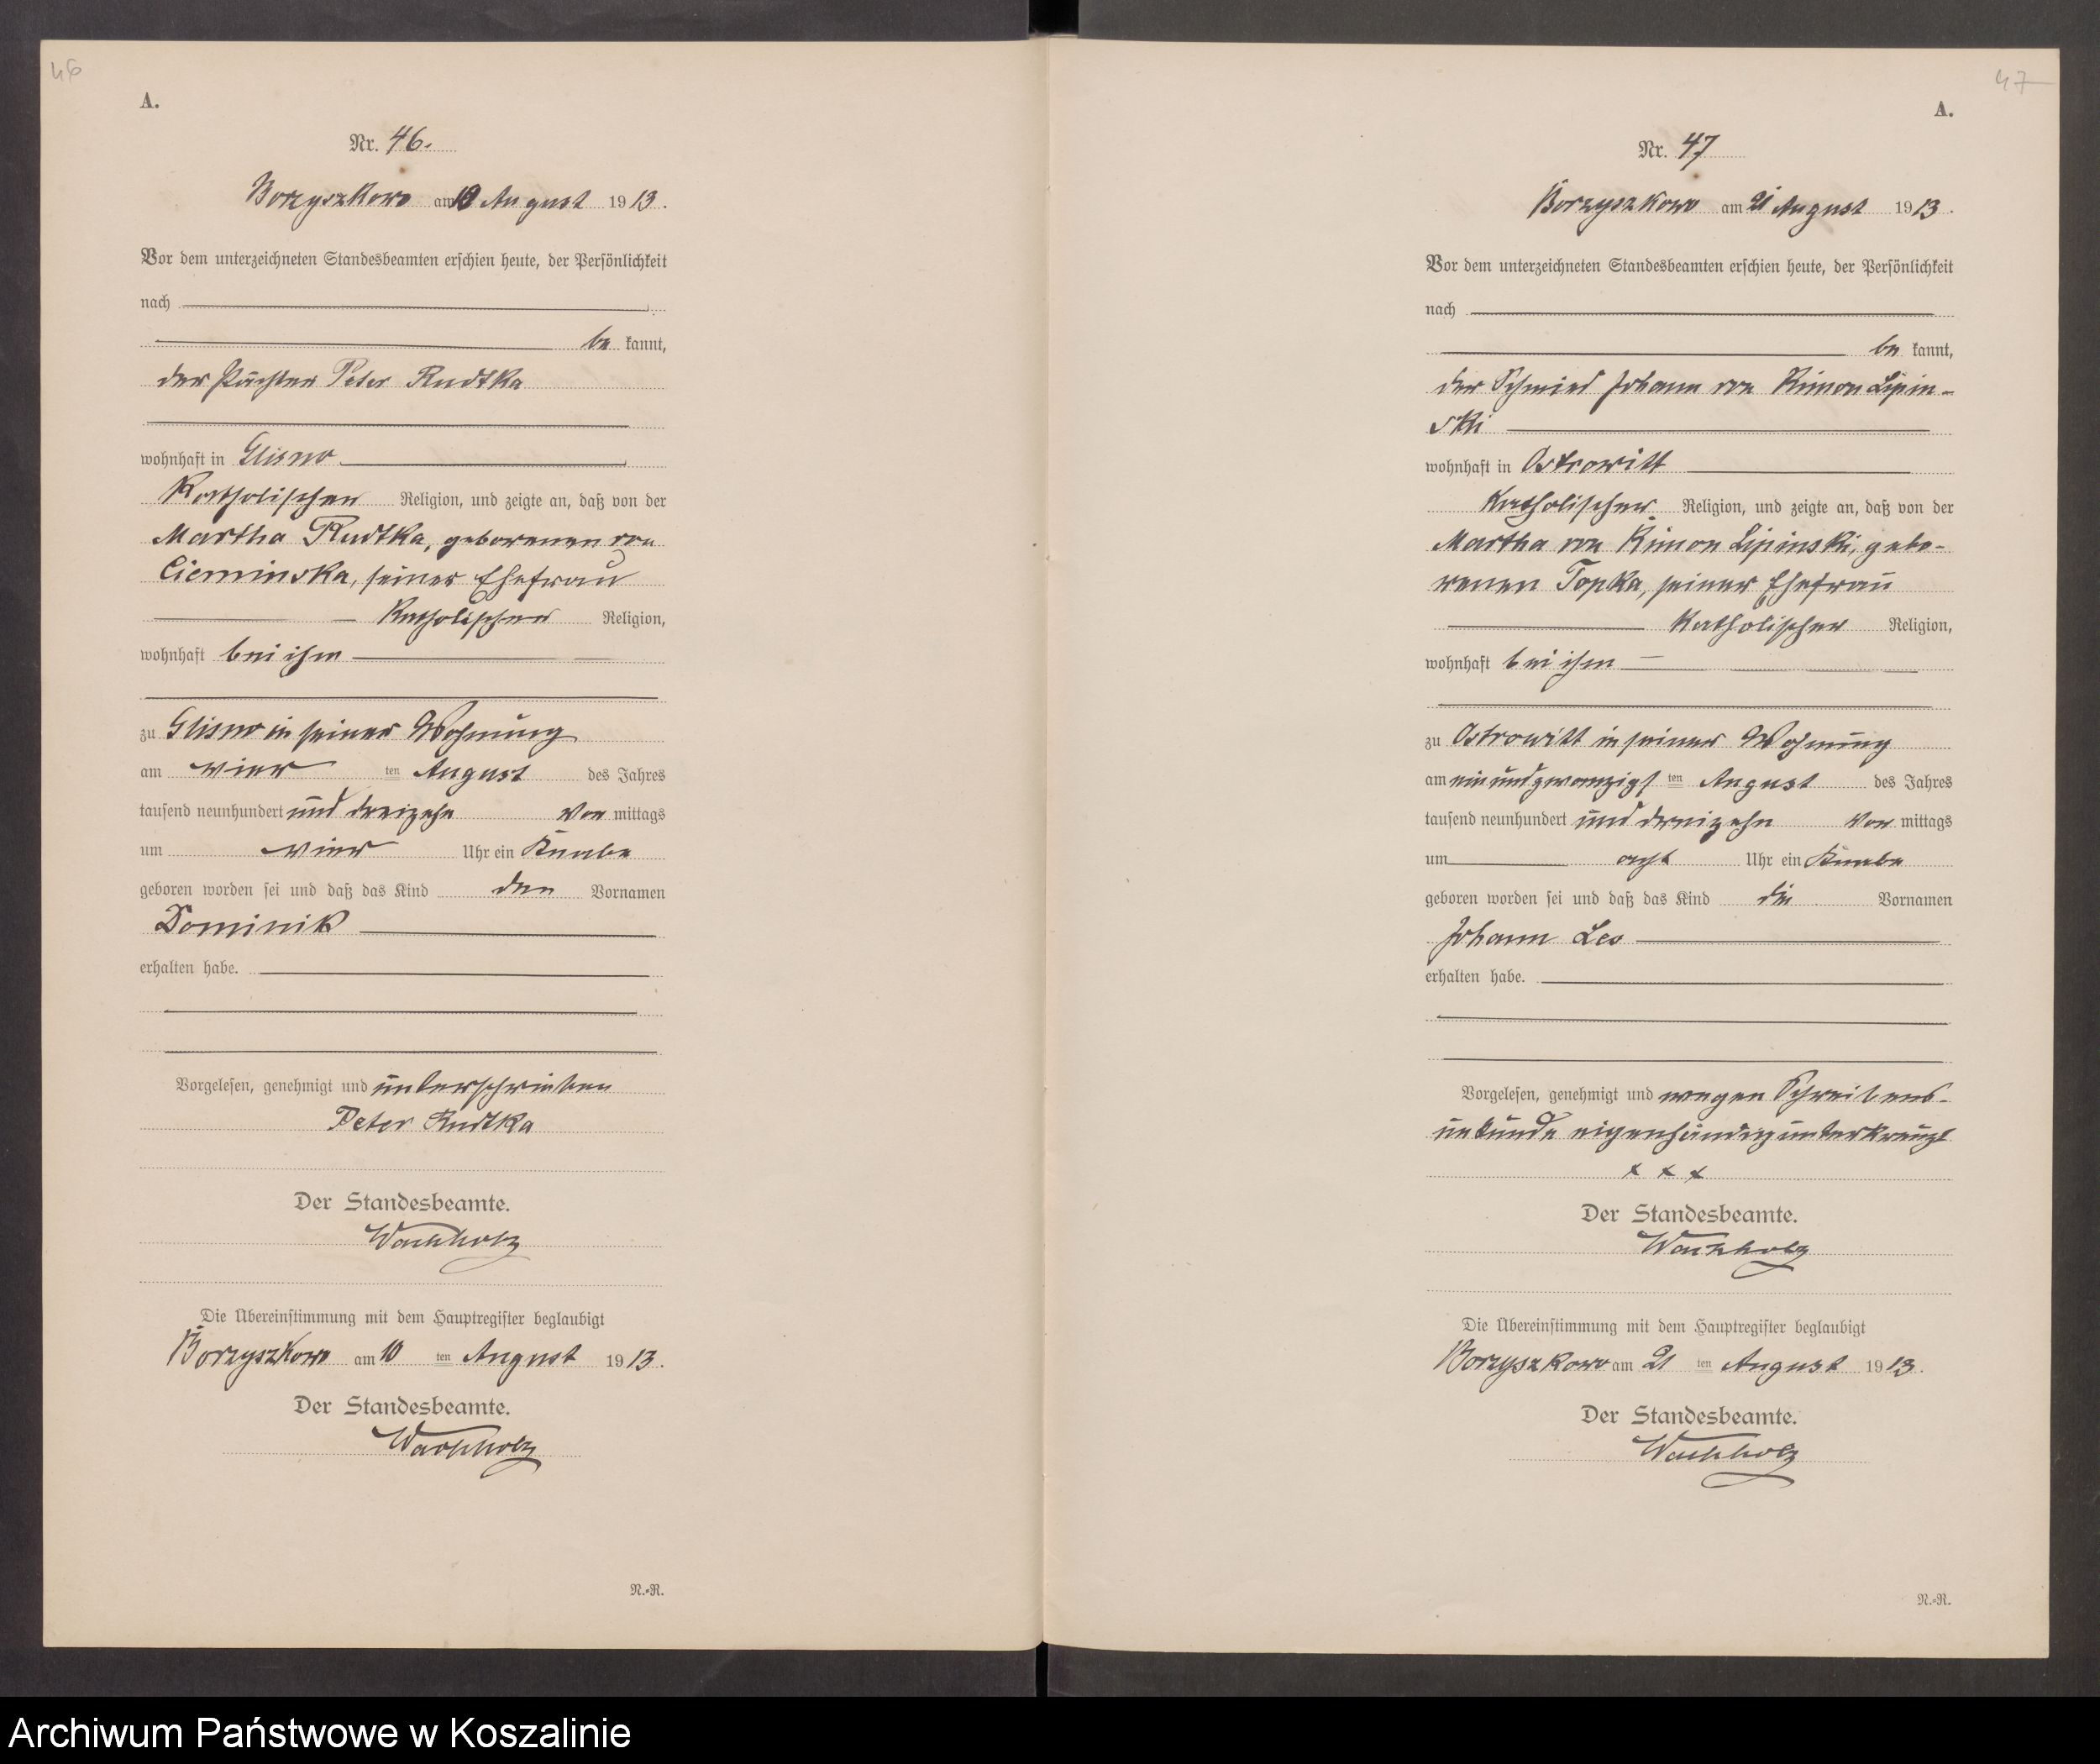 46
A.
Nr. 46.
Borzyszkowo am 10 August 1913.
Vor dem unterzeichneten Standesbeamten erschien heute, der Persönlichkeit
nach
be kannt,
der Pächter Peter Rudtka
wohnhaft in Glisno
Katholischer Religion, und zeigte an, daß von der
Martha Rudtka, geborenen von
Cieminska, seiner Ehefrau
Katholischer Religion,
wohnhaft bei ihm
zu Glisno in seiner Wohnung
am vier ten August des Jahres
tausend neunhundert und dreizehn Vor mittags
um vier Uhr ein Knabe
geboren worden sei und daß das Kind den Vornamen
Dominik
erhalten habe.
Vorgelesen, genehmigt und unterschrieben
Peter Rudtka
Der Standesbeamte.
Wachholz
Die Übereinstimmung mit dem Hauptregister beglaubigt
Borzyszkowo am 10 ten August 1913.
Der Standesbeamte.
Wachholz
N.-R.
47
A.
Nr. 47
Borzyszkowo am 21 August 1913.
Vor dem unterzeichneten Standesbeamten erschien heute, der Persönlichkeit
nach
be kannt,
der Schmied Johann von Kimon Lipin-
ski
wohnhaft in Ostrowitt
Katholischer Religion, und zeigte an, daß von der
Martha von Kimon Lipinski, gebo-
renen Topka, seiner Ehefrau
Katholischer Religion,
wohnhaft bei ihm
zu Ostrowitt in seiner Wohnung
am einundzwanzigs ten August des Jahres
tausend neunhundert und dreizehn Vor mittags
um acht Uhr ein Knabe
geboren worden sei und daß das Kind die Vornamen
Johann Leo
erhalten habe.
Vorgelesen, genehmigt und wegen Schreibens-
unkunde eigenhändig unterkreuzt
x x x
Der Standesbeamte.
Wachholz
Die Übereinstimmung mit dem Hauptregister beglaubigt
Borzyszkowo am 21 ten August 1913.
Der Standesbeamte.
Wachholz
N.-R.
Archiwum Państwowe w Koszalinie